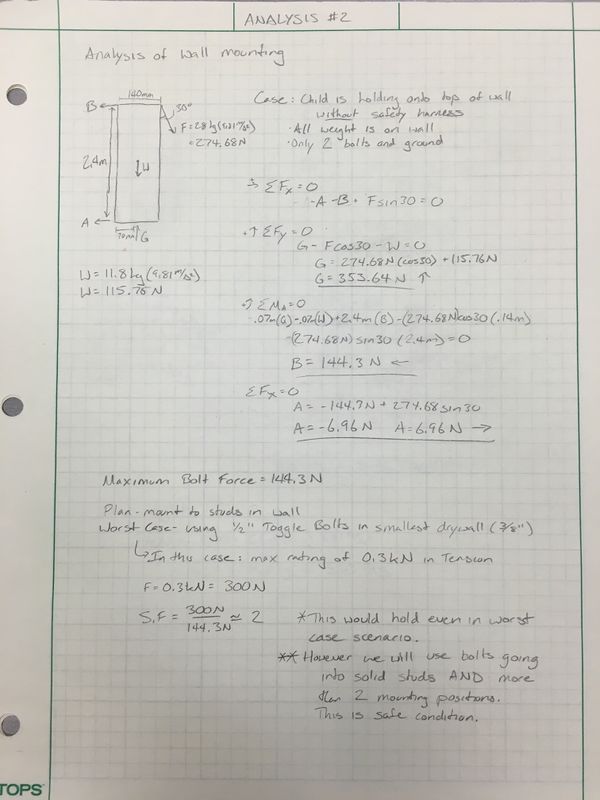 ANALYSIS #2
Analysis of Wall mounting
140mm
B
30°
F=28kg(9.81m/s²)
=274.68N
2.4m
W
A
70mm
G
W=11.8kg(9.81m/s²)
W=115.76N
Case: Child is holding onto top of wall
without safety harness
· All weight is on wall
· Only 2 bolts and ground
ΣFx=0
-A -B + Fsin30=0
+↑ΣFy=0
G-Fcos30-W=0
G=274.68N(cos30)+115.76N
G=353.64N ↑
ΣMA=0
.07m(G)-.07m(W)+2.4m(B)-(274.68N)cos30(.14m)
-(274.68N)sin30(2.4m)=0
B=144.3N ←
ΣFx=0
A=-144.3N+274.68sin30
A=-6.96N A=6.96N →
Maximum Bolt Force=144.3N
Plan-mount to studs in wall
Worst Case- using 1/2" Toggle Bolts in smallest drywall (3/8")
↳In this case: max rating of 0.3kN in Tension
F=0.3kN=300N
S.F=300N/144.3N≃2
*This would hold even in worst
case scenario.
**However we will use bolts going
into solid studs AND more
than 2 mounting positions.
This is safe condition.
TOPS